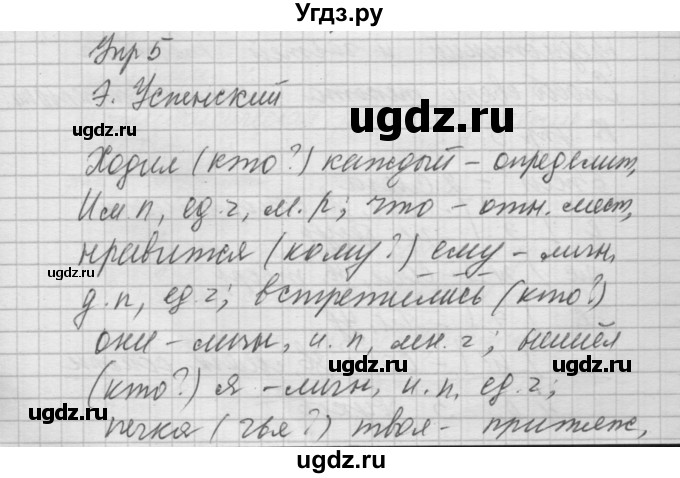 Угдз.ру
Упр 5
Э. Успенский
ugdz.ru
ugdz.ru
ugdz.ru
Ходил (кто?) каждый – определит,
Им. п, ед. ч, м. р; что – отн. мест,
нравится (кому?) ему – личн,
ugdz.ru
ugdz.ru
д. п, ед. ч; встретились (кто?)
они – личн, и. п, мн. ч; вышел
ugdz.ru
(кто?) я – личн, и. п, ед. ч;
ugdz.ru
ugdz.ru
печка (чья?) твоя – притяж,
ugdz.ru